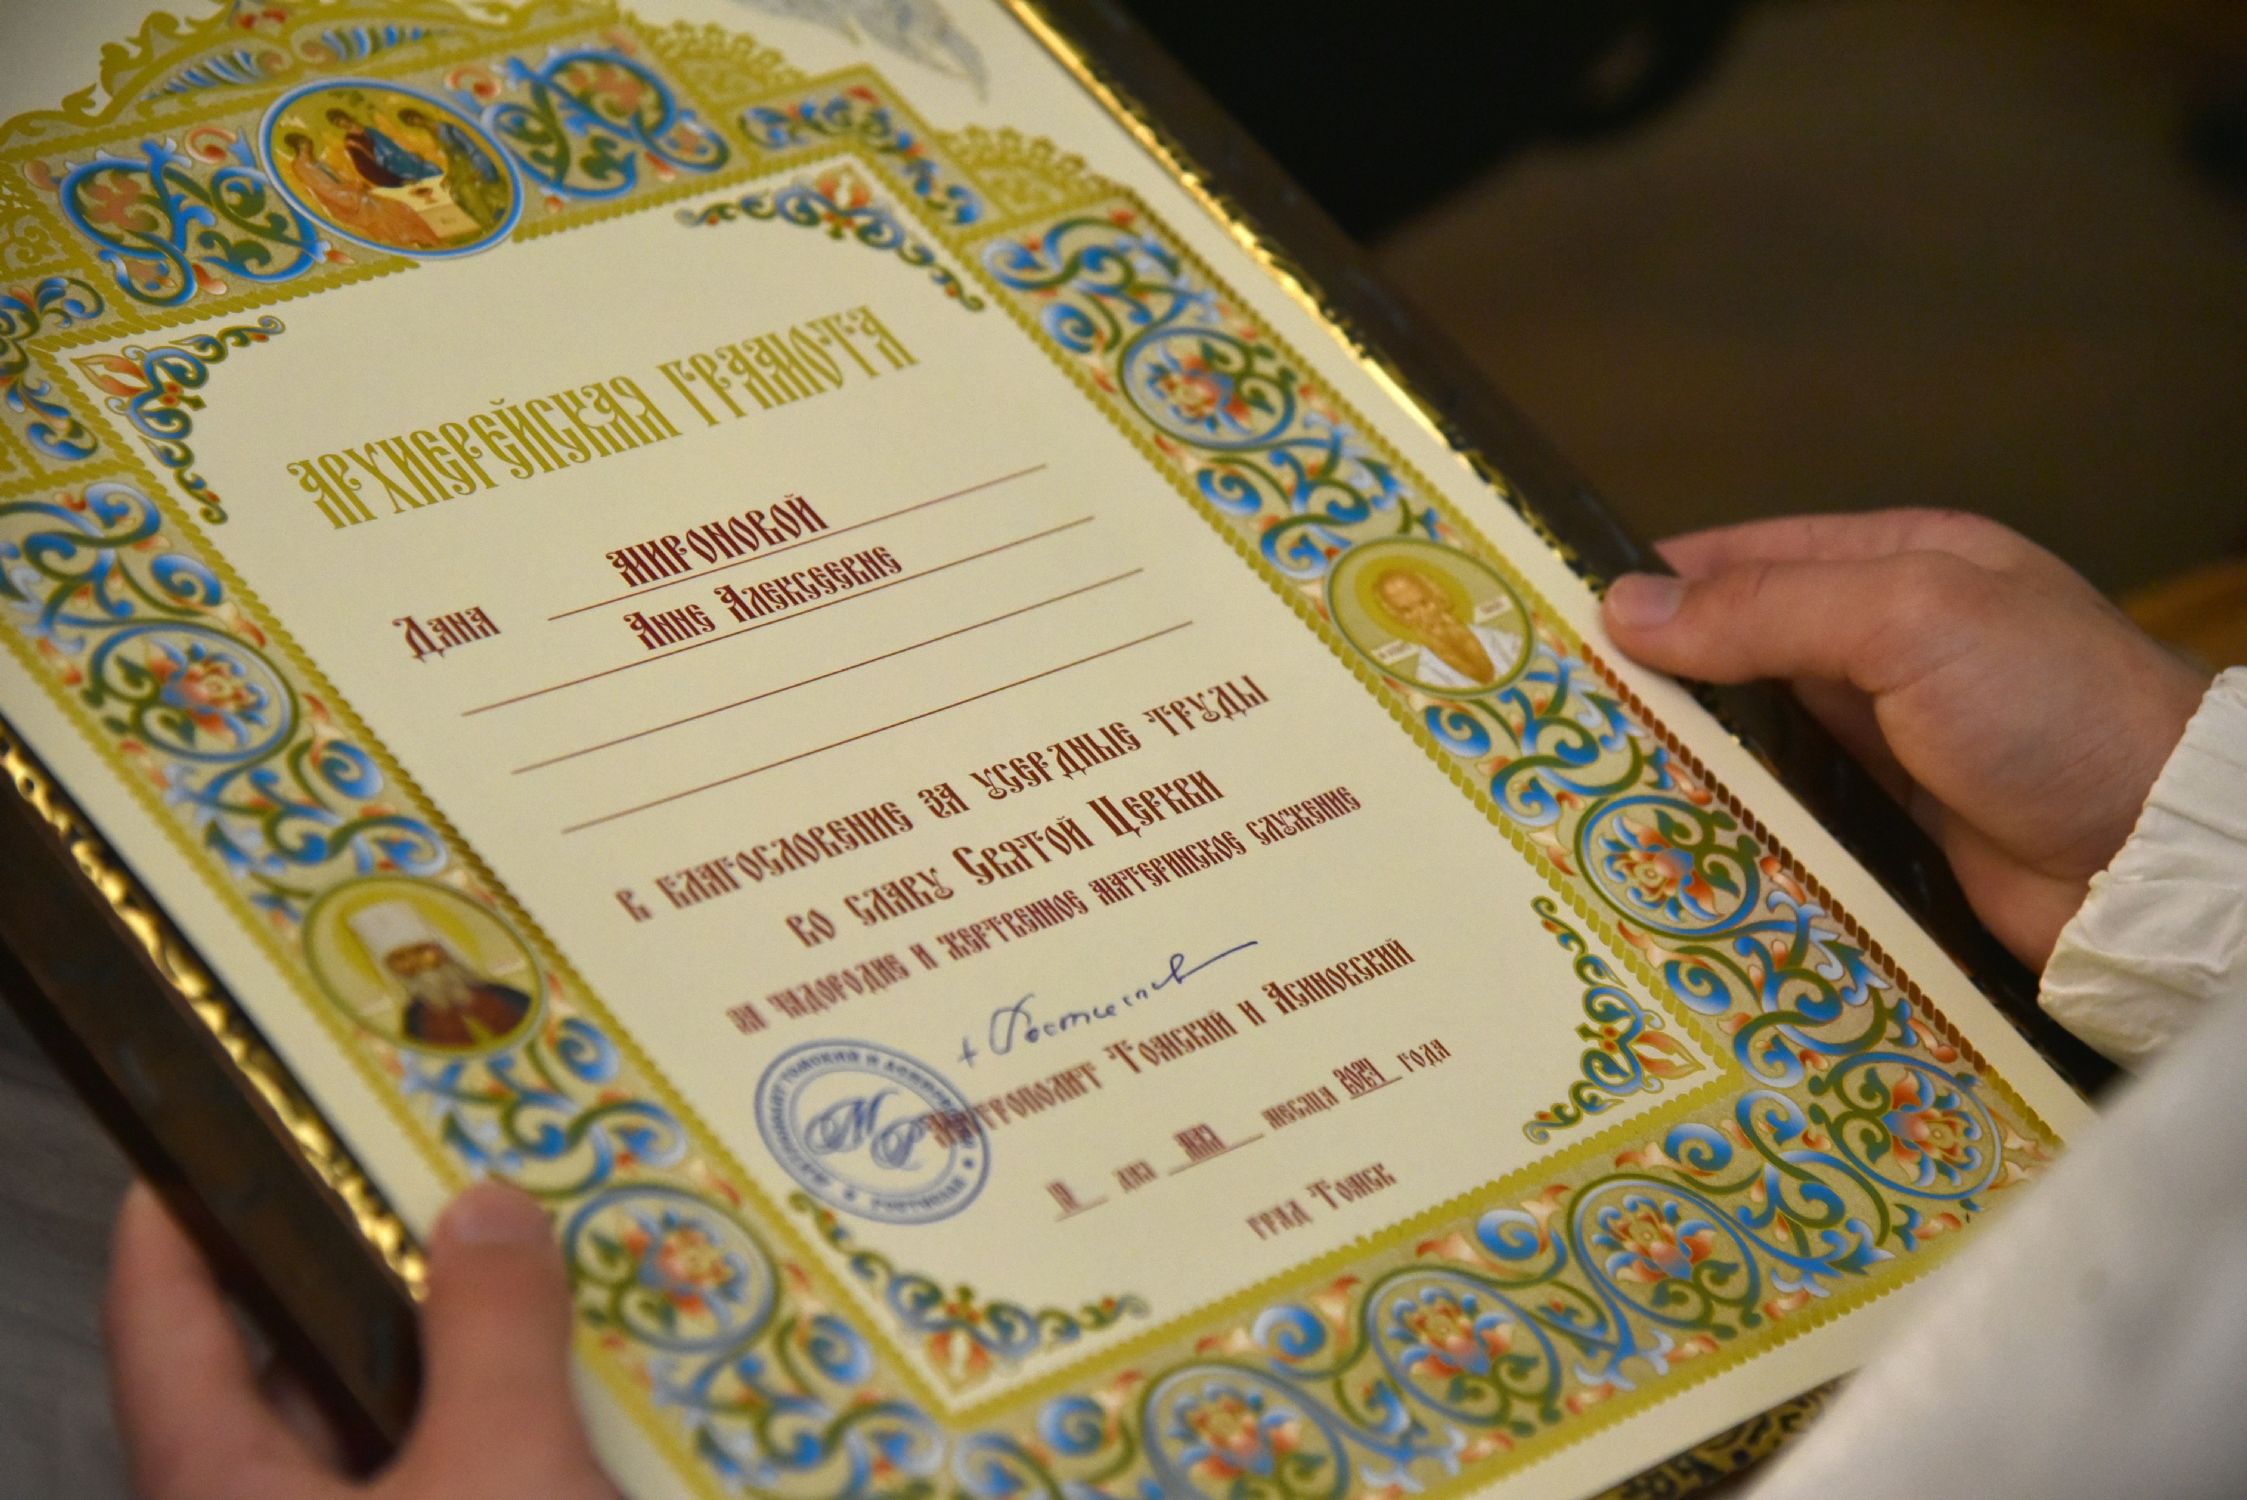 АРХИЕРЕЙСКАЯ ГРАМОТА
Дана МИРОНОВОЙ
Анне Алексеевне
в благословение за усердные труды
во славу Святой Церкви
за чадородие и жертвенное материнское служение
+ Ростислав
Митрополит Томский и Асиновский
дня мая месяца 2024 года
град Томск
МР